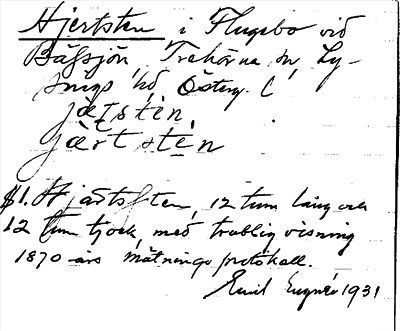 Hjertsten i Flugebo vid
Båssjön, Trehörna sn, Ly-
sings hd, Österg. l
jæʈstèn
järtstèn
§1. Hjärtsten, 12 tum lång och
12 tum tjock, med trublig visning
1870 års mätnings protokoll.
Emil 1931